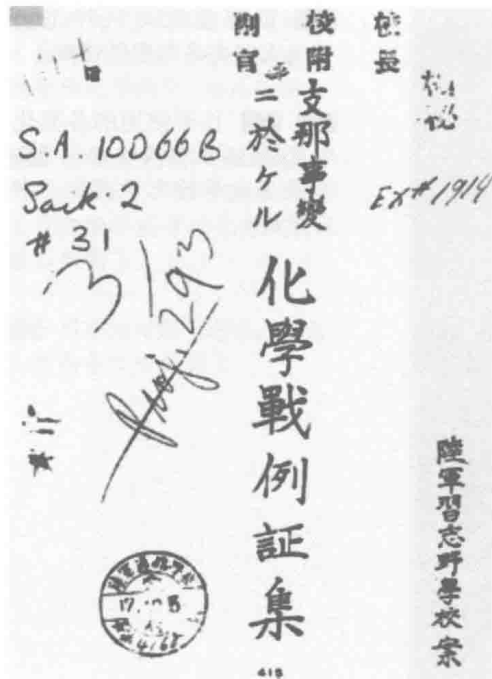 校長
Ex# 1914
陸軍習志野學校案
校附
副官
支那事變
ニ於ケル
化學戰例証集
S.A. 10066B
Sack. 2
# 31
293
17.
4168
415